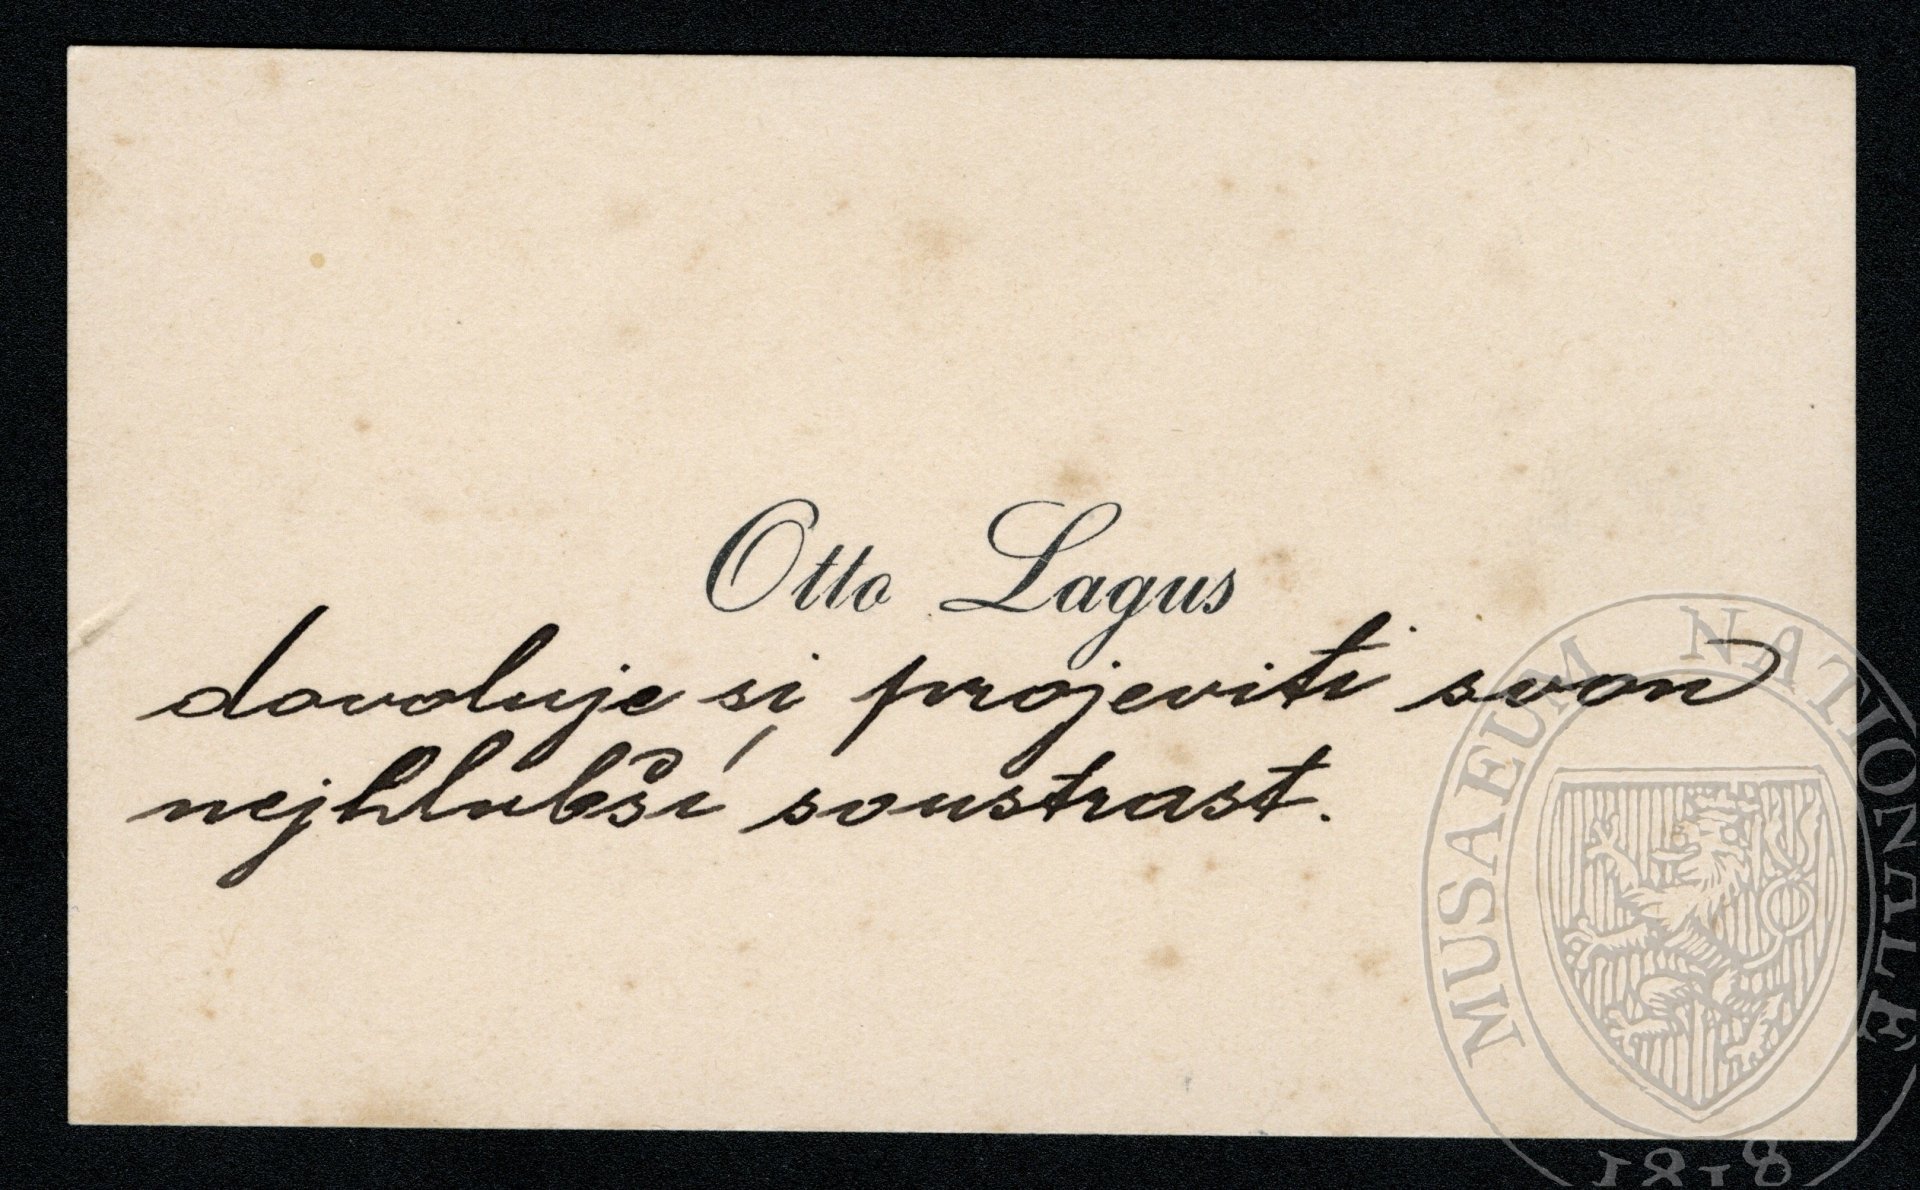 Otto Lagus
dovoluje si projeviti svou
nejhlubší soustrast.
MUSAEUM NATIONALE
1818